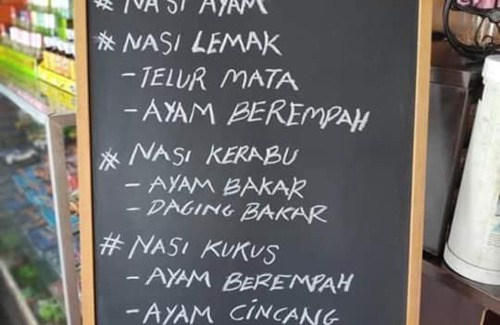 # NASI AYAM
# NASI LEMAK
- TELUR MATA
- AYAM BEREMPAH
# NASI KERABU
- AYAM BAKAR
- DAGING BAKAR
# NASI KUKUS
- AYAM BEREMPAH
- AYAM CINCANG